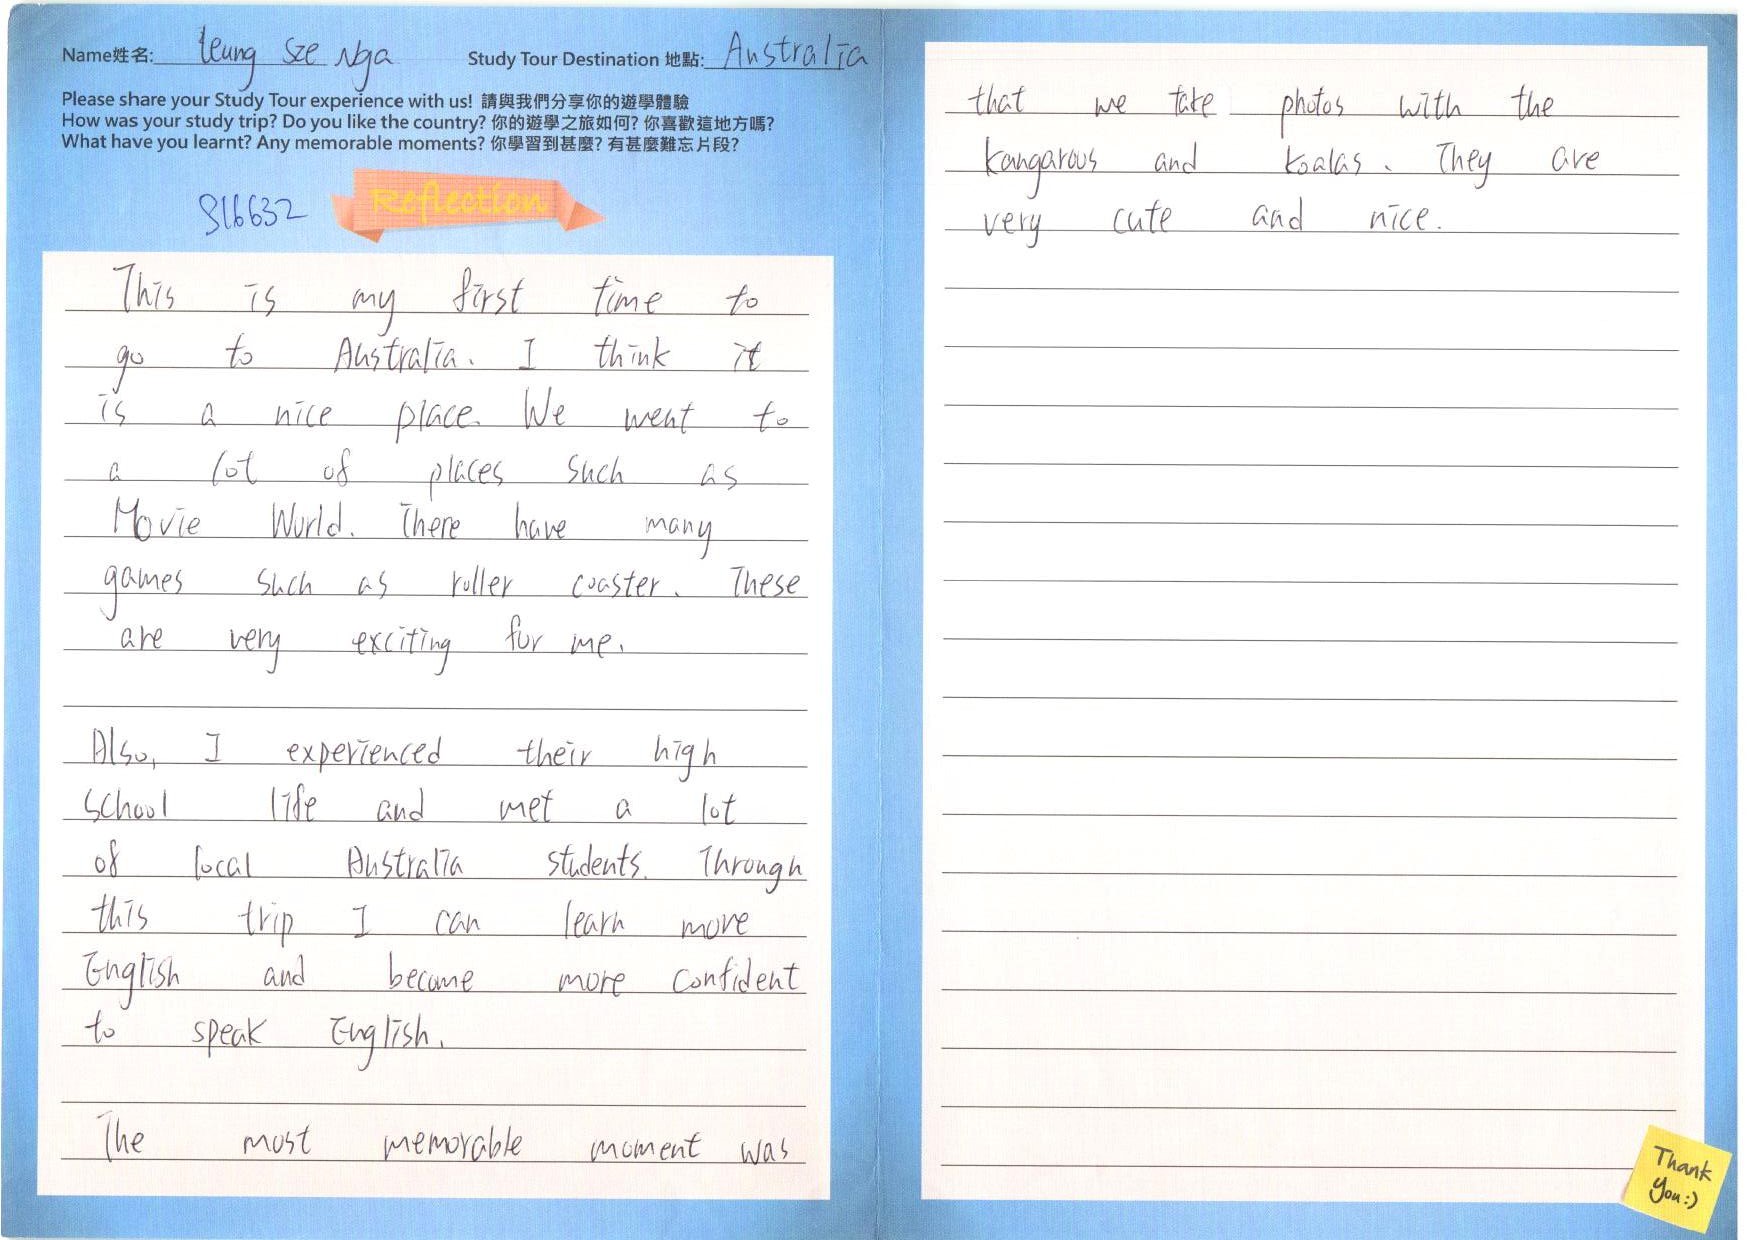 Name姓名: Leung Sze Nga Study Tour Destination 地點: Australia
Please share your Study Tour experience with us! 請與我們分享你的遊學體驗
How was your study trip? Do you like the country? 你的遊學之旅如何? 你喜歡這地方嗎?
What have you learnt? Any memorable moments? 你學習到甚麼? 有甚麼難忘片段?
S16632
Reflection
This is my first time to
go to Australia. I think it
is a nice place. We went to
a lot of places such as
Movie World. There have many
games such as roller coaster. These
are very exciting for me.
Also, I experienced their high
school life and met a lot
of local Australia students. Through
this trip I can learn more
English and become more confident
to speak English.
The most memorable moment was
that we take photos with the
kangarous and koalas. They are
very cute and nice.
Thank
you:)